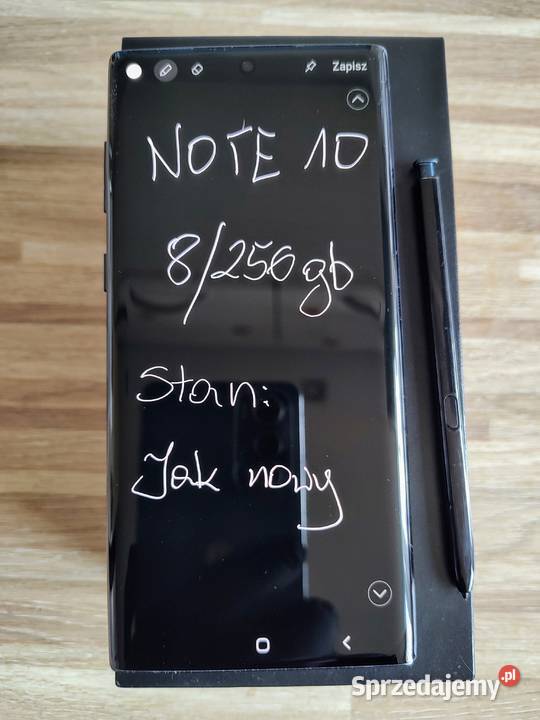 Zapisz
NOTE 10
8/256gb
Stan:
Jak nowy
Sprzedajemy.pl